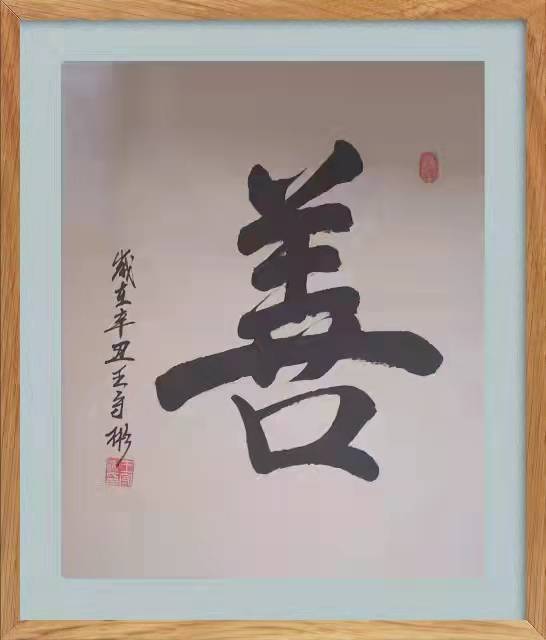 善
歲在辛丑王守彬